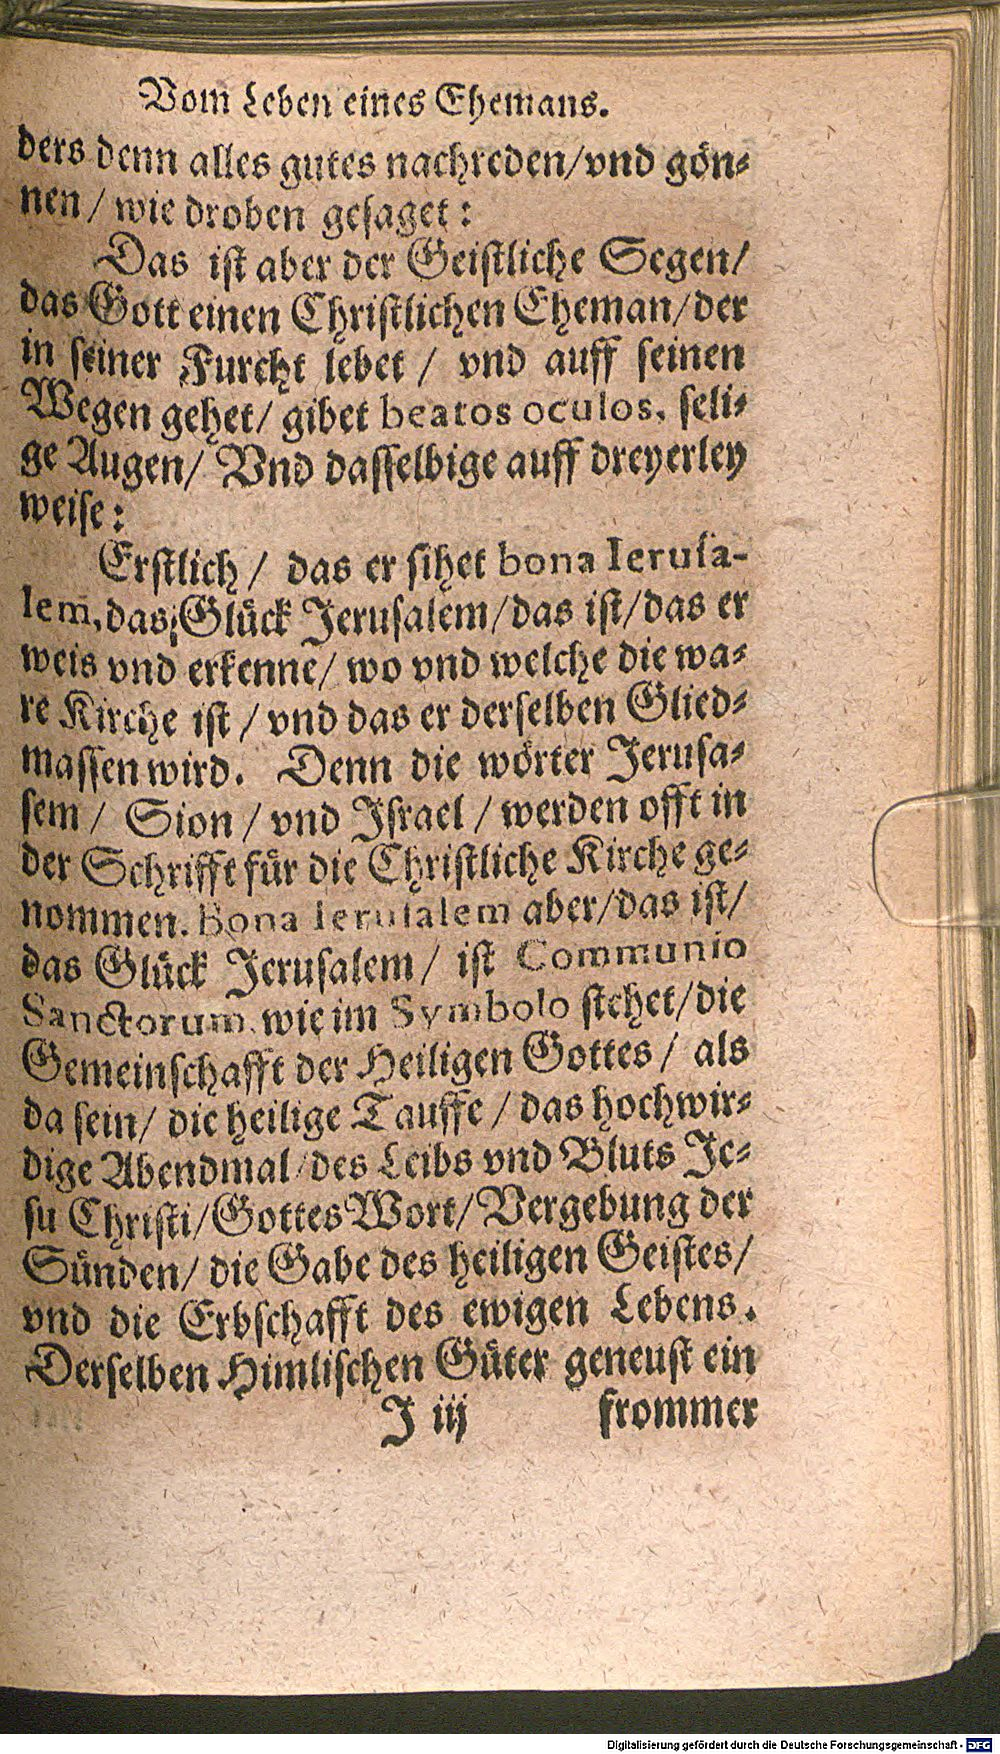 Vom Leben eines Ehemans.
ders denn alles gutes nachreden/vnd gön⸗
nen / wie droben gesaget:
Das ist aber der Geistliche Segen/
das Gott einen Christlichen Eheman/der
in seiner Furcht lebet / vnd auff seinen
Wegen gehet/ gibet beatos oculos, seli⸗
ge Augen/ Vnd dasselbige auff dreyerley
weise:
Erstlich / das er sihet bona Ierusa-
lem, das Glück Jerusalem/das ist/das er
weis vnd erkenne/ wo vnd welche die wa⸗
re Kirche ist / vnd das er derselben Glied⸗
massen wird. Denn die wörter Jerusa⸗
sem / Sion / vnd Israel / werden offt in
der Schrifft für die Christliche Kirche ge⸗
nommen. Bona Ierusalem aber/das ist/
das Glück Jerusalem / ist Communio
Sanctorum, wie im Symbolo stehet/die
Gemeinschafft der Heiligen Gottes / als
da sein/ die heilige Tauffe / das hochwir⸗
dige Abendmal/des Leibs vnd Bluts Je⸗
su Christi/Gottes Wort/Vergebung der
Sünden/ die Gabe des heiligen Geistes/
vnd die Erbschafft des ewigen Lebens.
Derselben Himlischen Güter geneust ein
J iij frommer
Digitalisierung gefördert durch die Deutsche Forschungsgemeinschaft - DFG